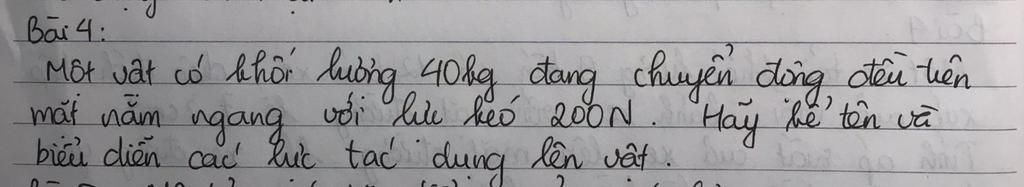 Bài 4:
Một vật có khối lượng 40kg đang chuyển động đều trên
mặt nằm ngang với lực kéo 200N. Hãy kể tên và
biểu diễn các lực tác dụng lên vật.